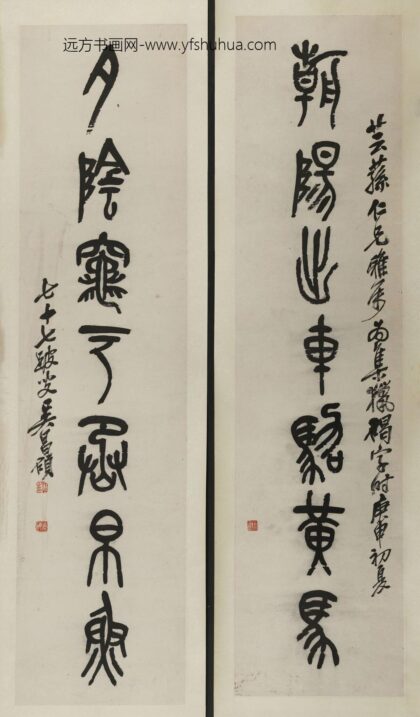 远方书画网-www.yfshuhua.com
芸蓀仁兄雅屬為集獵碣字時庚申初夏
朝陽出車駱黃馬
夕陰帛魚
七十七跛叟吳昌碩